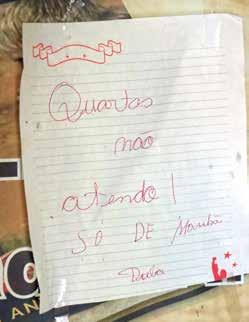 Quartas
nao
atendo!
SÓ DE Manhã
Duba
AN